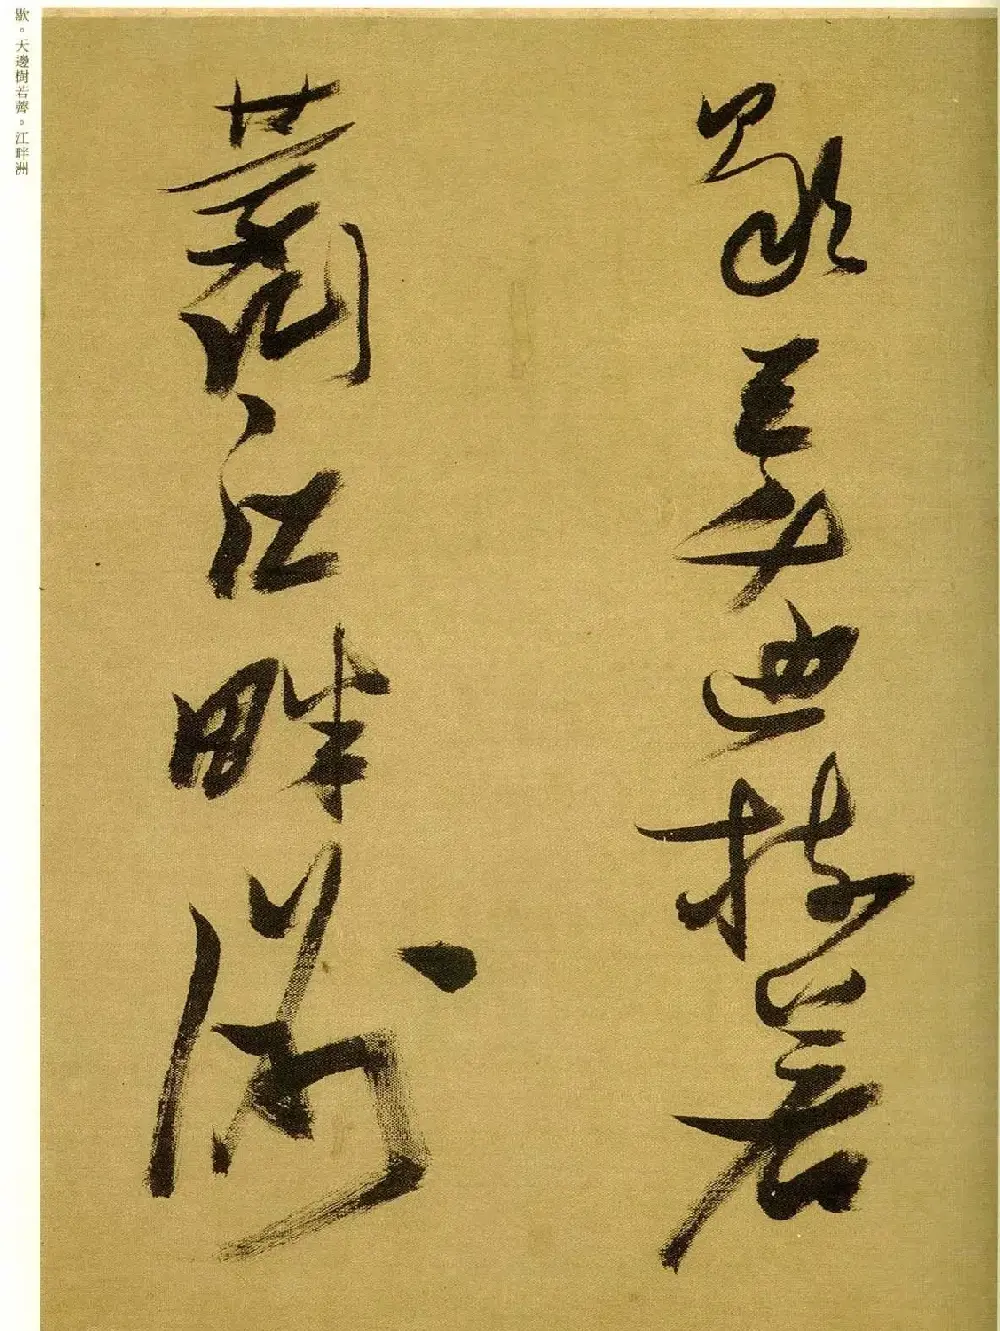 歇天邊樹若
薺江畔洲
歇。天邊樹若薺。江畔洲